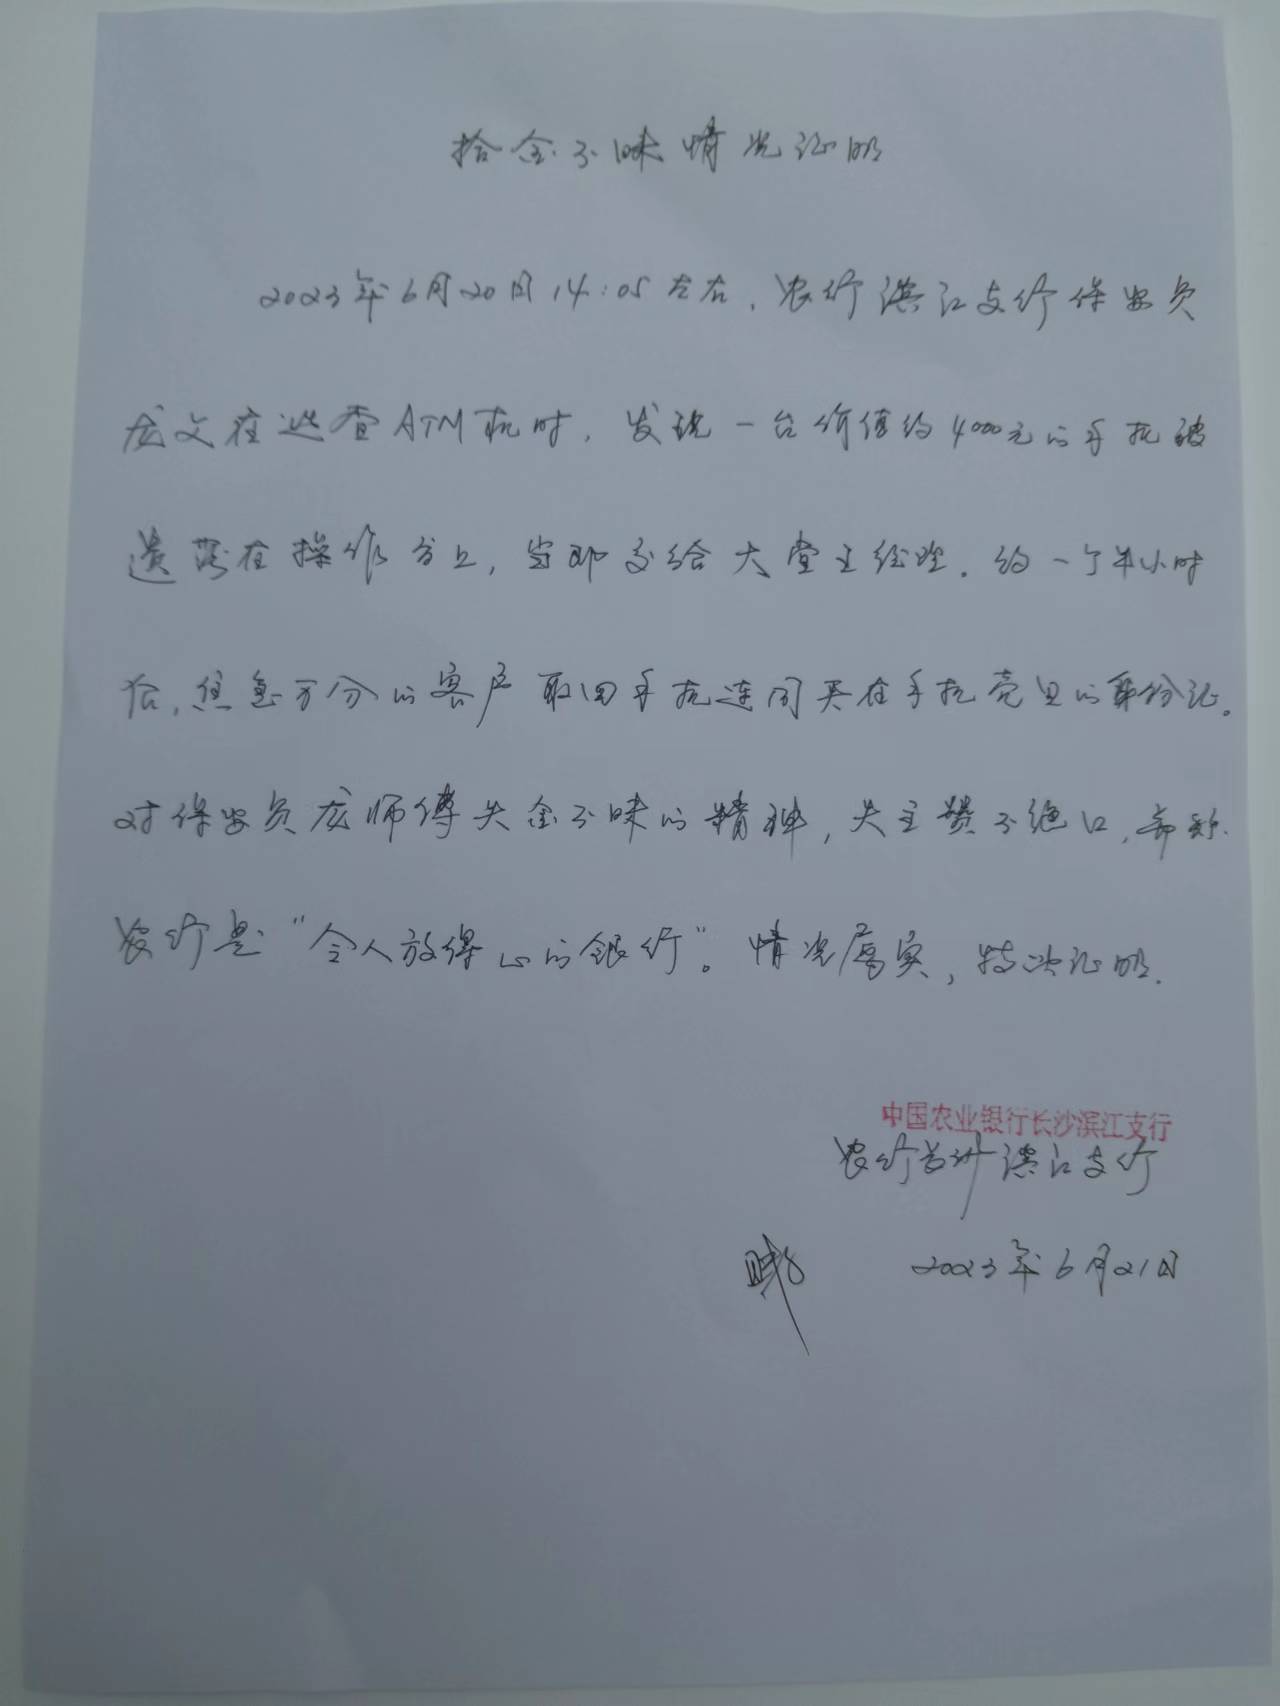 拾金不昧情况证明
2023年6月20日14:05左右，农行滨江支行保安员
龙文在巡查ATM机时，发现一台价值约4000元的手机被
遗落在操作台上，当即交给大堂主经理。约一个半小时
后，焦急万分的客户取回手机连同夹在手机壳里的身份证。
对保安员龙师傅失金不昧的精神，失主赞不绝口，称
农行是"令人放得心的银行"。情况属实，特此证明.
中国农业银行长沙滨江支行
农行滨江支行
2023年6月21日